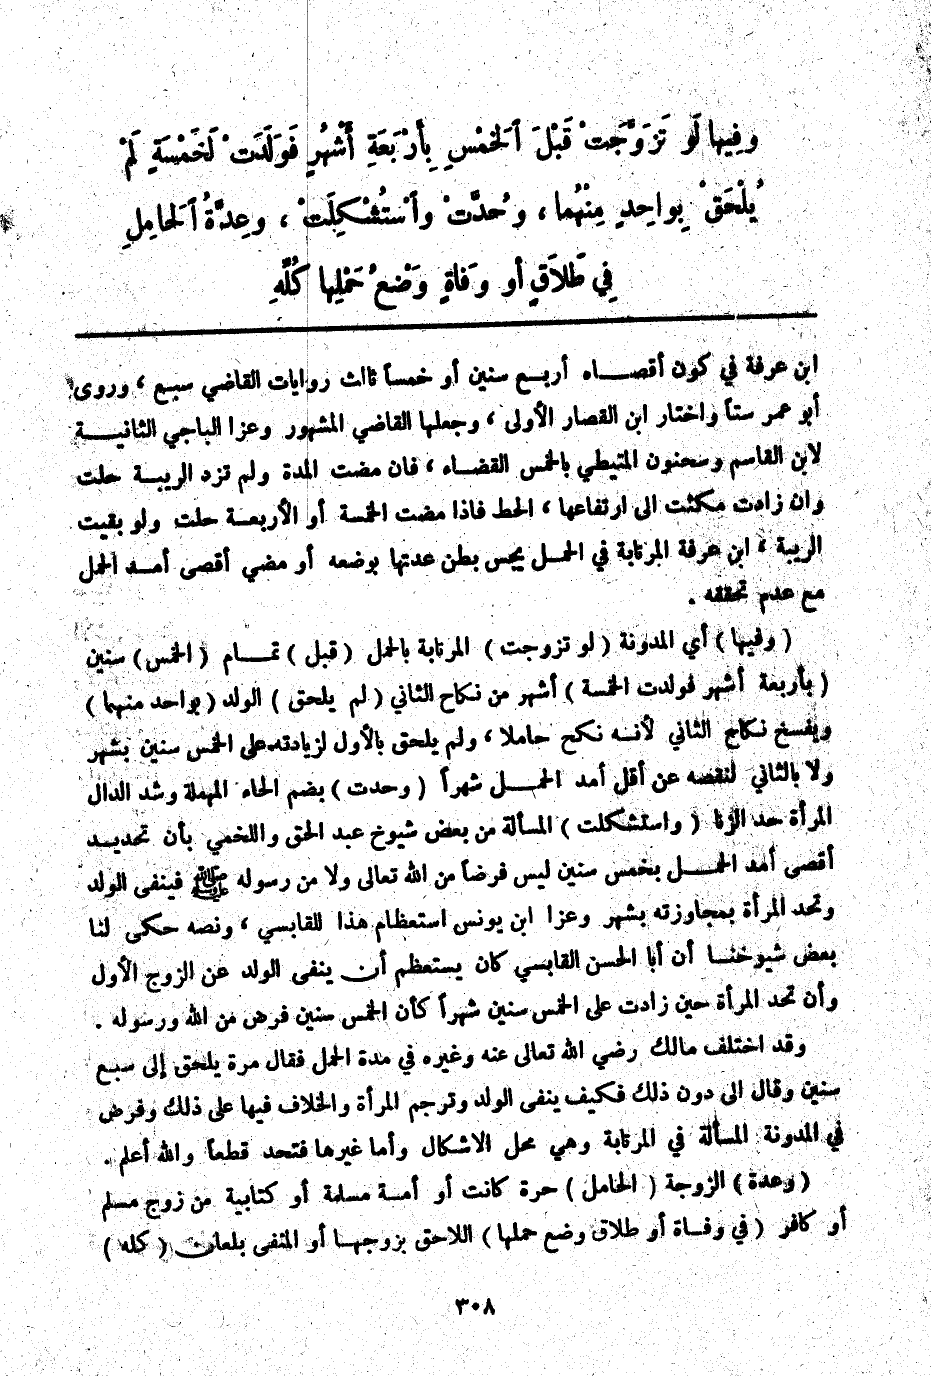 وفِيها لَو تَزَوَّجَتْ قَبْلَ ٱلخَمْسِ بِأَرْبَعَةِ أَشْهُرٍ فَوَلَدَتْ لَخَمْسَةٍ لَمْ
يُلْحَقْ بِواحِدٍ مِنْهُما ، وحُدَّتْ وٱسْتُشْكِلَتْ ، وعِدَّةُ ٱلحامِلِ
فِي طَلاَقٍ أو وَفاةٍ وَضْعُ حَمْلِها كُلِّهِ
ابن عرفة في كون أقصــاه أربــع سنين أو خمساً ثالث روايات القاضي سبع ، وروى
أبو عمر ستاً واختار ابن القصار الأولى ، وجعلها القاضي المشهور وعزا الباجي الثانيــة
لابن القاسم وسحنون المتيطي بالخمس القضــاء ، فان مضت المدة ولم تزد الريبــة حلت
وان زادت مكثت الى ارتفاعها ، الحط فاذا مضت الخمسة أو الأربعــة حلت ولو بقيت
الريبة ، ابن عرفة المرتابة في الحمــل بجس بطن عدتها بوضعه أو مضي أقصى أمــد الحمل
مع عدم تحققه .
( وفيها ) أي المدونة ( لو تزوجت ) المرتابة بالحمل ( قبل ) تمــام ( الخمس ) سنين
( بأربعة أشهر فولدت لخمسة ) أشهر من نكاح الثاني ( لم يلحق ) الولد ( بواحد منهما )
ويفسخ نكاح الثاني لأنــه نكح حاملا ، ولم يلحق بالأول لزيادته على الخمس سنين بشهر
ولا بالثاني لنقصه عن أقل أمد الحمــل شهراً ( وحدت ) بضم الحاء المهملة وشد الدال
المرأة حد الزنا ( واستشكلت ) المسألة من بعض شيوخ عبد الحق واللخمي بأن تحديــد
أقصى أمد الحمــل بخمس سنين ليس فرضاً من الله تعالى ولا من رسوله ﷺ فينفى الولد
وتحد المرأة بمجاوزته بشهر وعزا ابن يونس استعظام هذا للقابسي ، ونصه حكى لنا
بعض شيوخنــا أن أبا الحسن القابسي كان يستعظم أن ينفى الولد عن الزوج الأول
وأن تحد المرأة حين زادت على الخمس سنين شهراً كأن الخمس سنين فرض من الله ورسوله .
وقد اختلف مالك رضي الله تعالى عنه وغيره في مدة الحمل فقال مرة يلحق إلى سبع
سنين وقال الى دون ذلك فكيف ينفى الولد وترجم المرأة والخلاف فيها على ذلك وفرض
في المدونة المسألة في المرتابة وهي محل الاشكال وأما غيرها فتحد قطعاً والله أعلم .
( وعدة ) الزوجة ( الحامل ) حرة كانت أو أمــة مسلمة أو كتابية من زوج مسلم
أو كافر ( في وفــاة أو طلاق وضع حملها ) اللاحق بزوجهــا أو المنفى بلعان ( كله )
٣٠٨